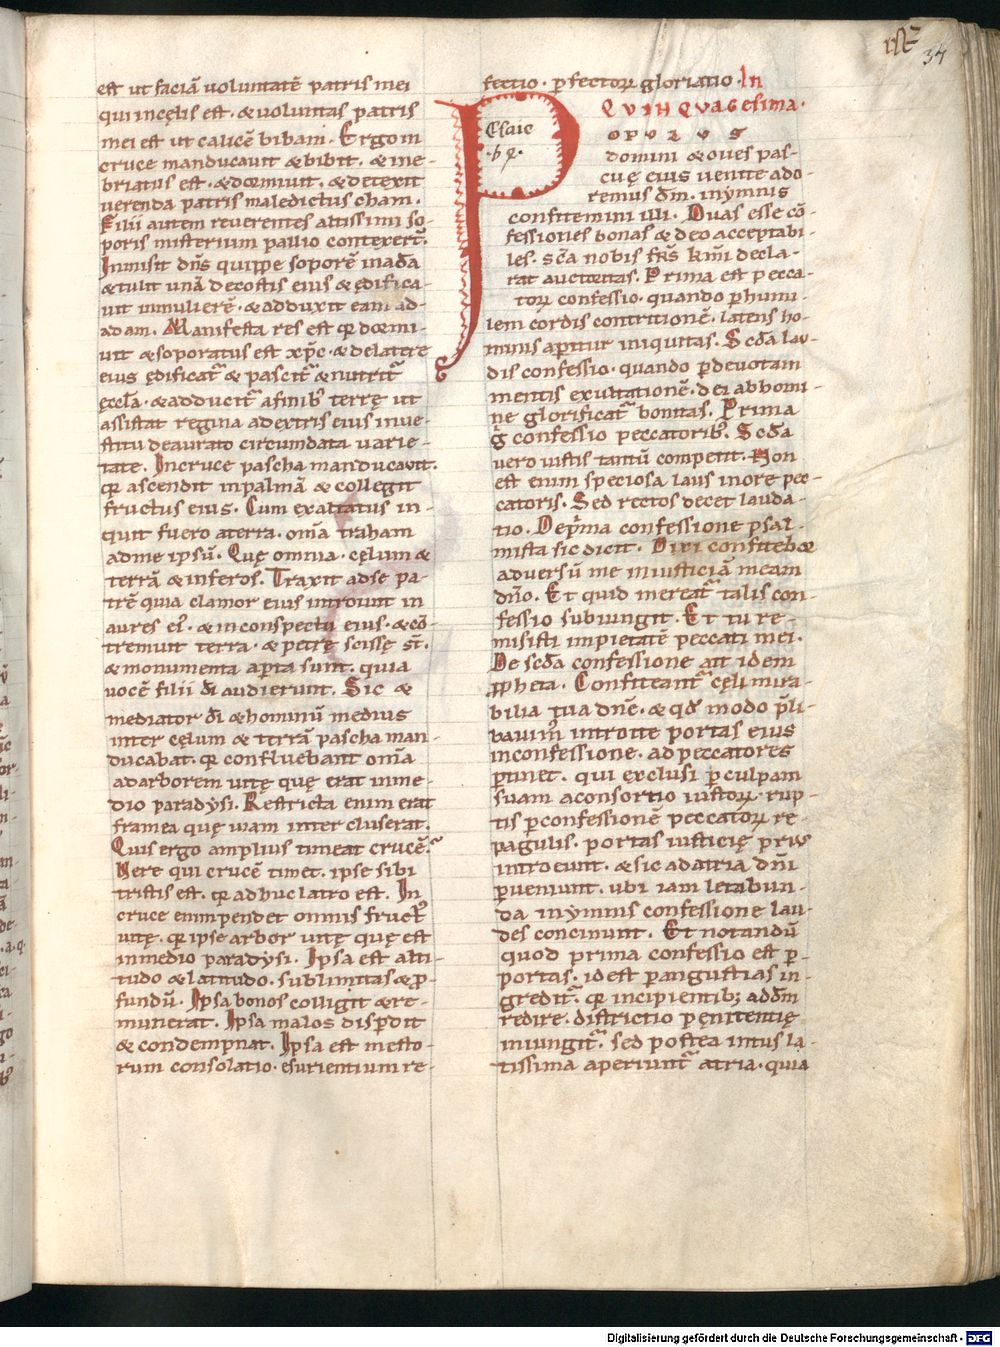 34
est ut faciā uoluntatē patris mei
qui incęlis est. & uoluntas patris
mei est ut calicē bibam. Ergo in
cruce manducauit & bibit. & ine-
briatus est. & dormiuit. & detexit
uerenda patris maledictus cham.
Filii autem reuerentes altissimi so-
poris misterium pallio contexert̄.
Inmisit dn̄s quippe soporē in adā
& tulit unā de costis eius & ędifica-
uit in mulierē. & adduxit eam ad
adam. Manifesta res est qͥ dormi-
uit & soporatus est xp̄c. & de latere
eius ędificat̄ & pascit̄ & nutrit̄
ęccl̄a. & adducit̄ a finib' terrę ut
assistat regina a dextris eius in ue-
stitu deaurato circumdata uarie-
tate. In cruce pascha manducauit.
qͥ ascendit in palmā & collegit
fructus eius. Cum exaltatus in-
quit fuero a terra. om̄a traham
ad me ipsū. Quę omnia. cęlum &
terrā & inferos. Traxit ad se pa-
trē quia clamor eius introiuit in
aures ei'. & in conspectu eius. & cō-
tremuit terra. & petrę scissę st̄.
& monumenta aꝑta sunt. quia
uocē filii dī audierunt. Sic &
mediator dī & hominū medius
inter cęlum & terrā pascha man-
ducabat. qͥ confluebant om̄a
ad arborem uitę quę erat in me-
dio paradysi. Restricta enim erat
framea quę uiam inter cluserat.
Quis ergo amplius timeat crucē.
Vere qui crucē timet. ipse sibi
tristis est. qͥ adhuc latro est. In
cruce enim pendet omnis fruct'
uitę. qͥ ipse arbor uitę quę est
in medio paradysi. Ipsa est alti-
tudo & latitudo. sublimitas & ꝓ-
fundū. Ipsa bonos colligit & re-
munerat. Ipsa malos disꝑdit
& condempnat. Ipsa est mesto-
rum consolatio. esurientium re-
fectio. ꝑfectorꝝ gloriatio. In
QVINQVAGESIMA.
Esaie
POPULUS
domini & oues pas-
cuę eius uenite ado-
remus dm̄. in ymnis
confitemini illi. Duas esse cō-
fessiones bonas & deo acceptabi-
les. sc̄a nobis fr̄s km̄i decla-
rat auctoritas. Prima est pecca-
torꝝ confessio. quando ꝑ humi-
lem cordis contritionē. latens ho-
minis aꝑitur iniquitas. Sc̄da lau-
dis confessio. quando ꝑ deuotam
mentis exultationē. dei ab homi-
ne glorificat̄ bonitas. Prima
g̊ confessio peccatorib'. Sc̄da
uero iustis tantū competit. Non
est enim speciosa laus in ore pec-
catoris. Sed rectos decet lauda-
tio. De pͥma confessione psal-
mista sic dicit. Dixi confitebor
aduersū me iniusticiā meam
dn̄o. Et quid mereat̄ talis con-
fessio subiungit. Et tu re-
misisti impietatē peccati mei.
De sc̄da confessione ait idem
ꝓpheta. Confiteant̄ cęli mira-
bilia tua dn̄e. & qđ modo p̄li-
bauim' introite portas eius
in confessione. ad peccatores
ꝑtinet. qui exclusi ꝑ culpam
suam a consortio iustorꝝ. rup-
tis ꝑ confessionē peccatorꝝ re-
pagulis. portas iusticię priꝰ
introeunt. & sic ad atria dn̄i
ꝑueniunt. ubi iam letabun-
da in ymnis confessione lau-
des concinunt. Et notandū
quod prima confessio est ꝑ
portas. id est ꝑ angustias in-
gredit̄. qͥ incipientib; ad dm̄
redire. districtio pęnitentię
iniungit̄. sed postea intus la-
tissima aperiunt̄ atria. quia
Digitalisierung gefördert durch die Deutsche Forschungsgemeinschaft - DFG